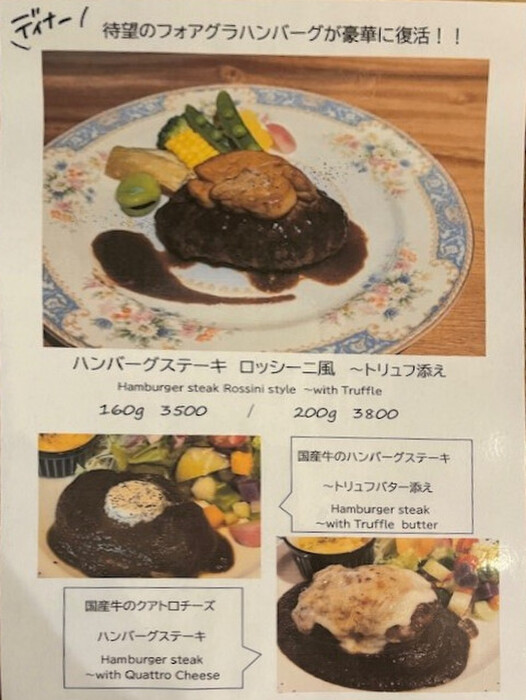 ディナー
待望のフォアグラハンバーグが豪華に復活！！
ハンバーグステーキ ロッシーニ風 ～トリュフ添え
Hamburger steak Rossini style ～with Truffle
160g 3500 / 200g 3800
国産牛のハンバーグステーキ
～トリュフバター添え
Hamburger steak
～with Truffle butter
国産牛のクアトロチーズ
ハンバーグステーキ
Hamburger steak
～with Quattro Cheese